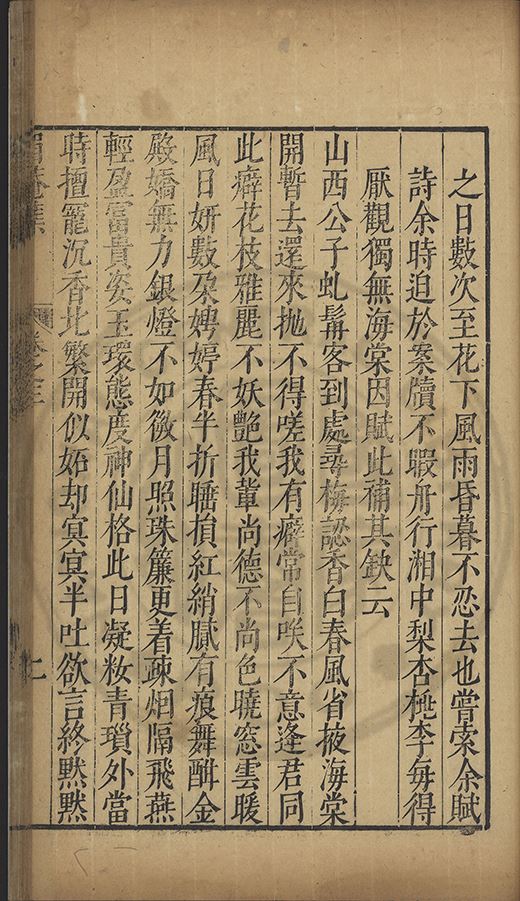 之日數次至花下風雨昏暮不忍去也嘗索余賦
詩余時迫於案牘不暇舟行湘中梨杏桃李每得
厭觀獨無海棠因賦此補其缺云
山西公子虬髯客到處尋梅認香白春風省掖海棠
開暫去還來拋不得嗟我有癖常自咲不意逢君同
此癖花枝雅麗不妖艷我輩尚德不尚色曉窓雲暖
風日妍數朶娉婷春半折睡損紅綃膩有痕舞酣金
殿嬌無力銀燈不如微月照珠簾更着疎烟隔飛燕
輕盈富貴姿玉環態度神仙格此日凝粧青瑣外當
時擅寵沉香北繁開似妬却寞寞半吐欲言終黙黙
卷之三